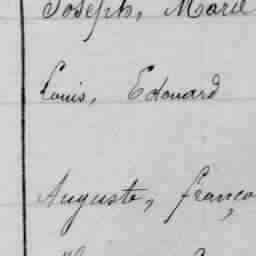 Joseph, Marie
Louis, Edouard
Auguste, franço